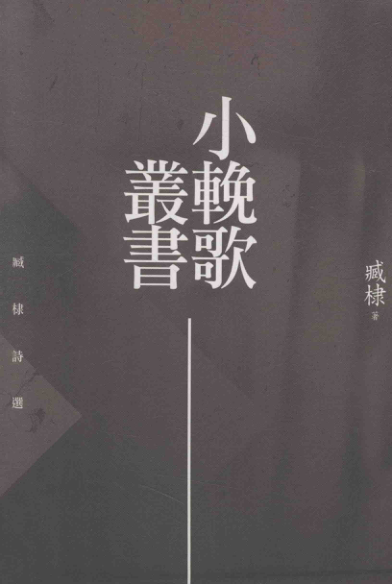 小輓歌
叢書
臧棣 著
臧棣詩選